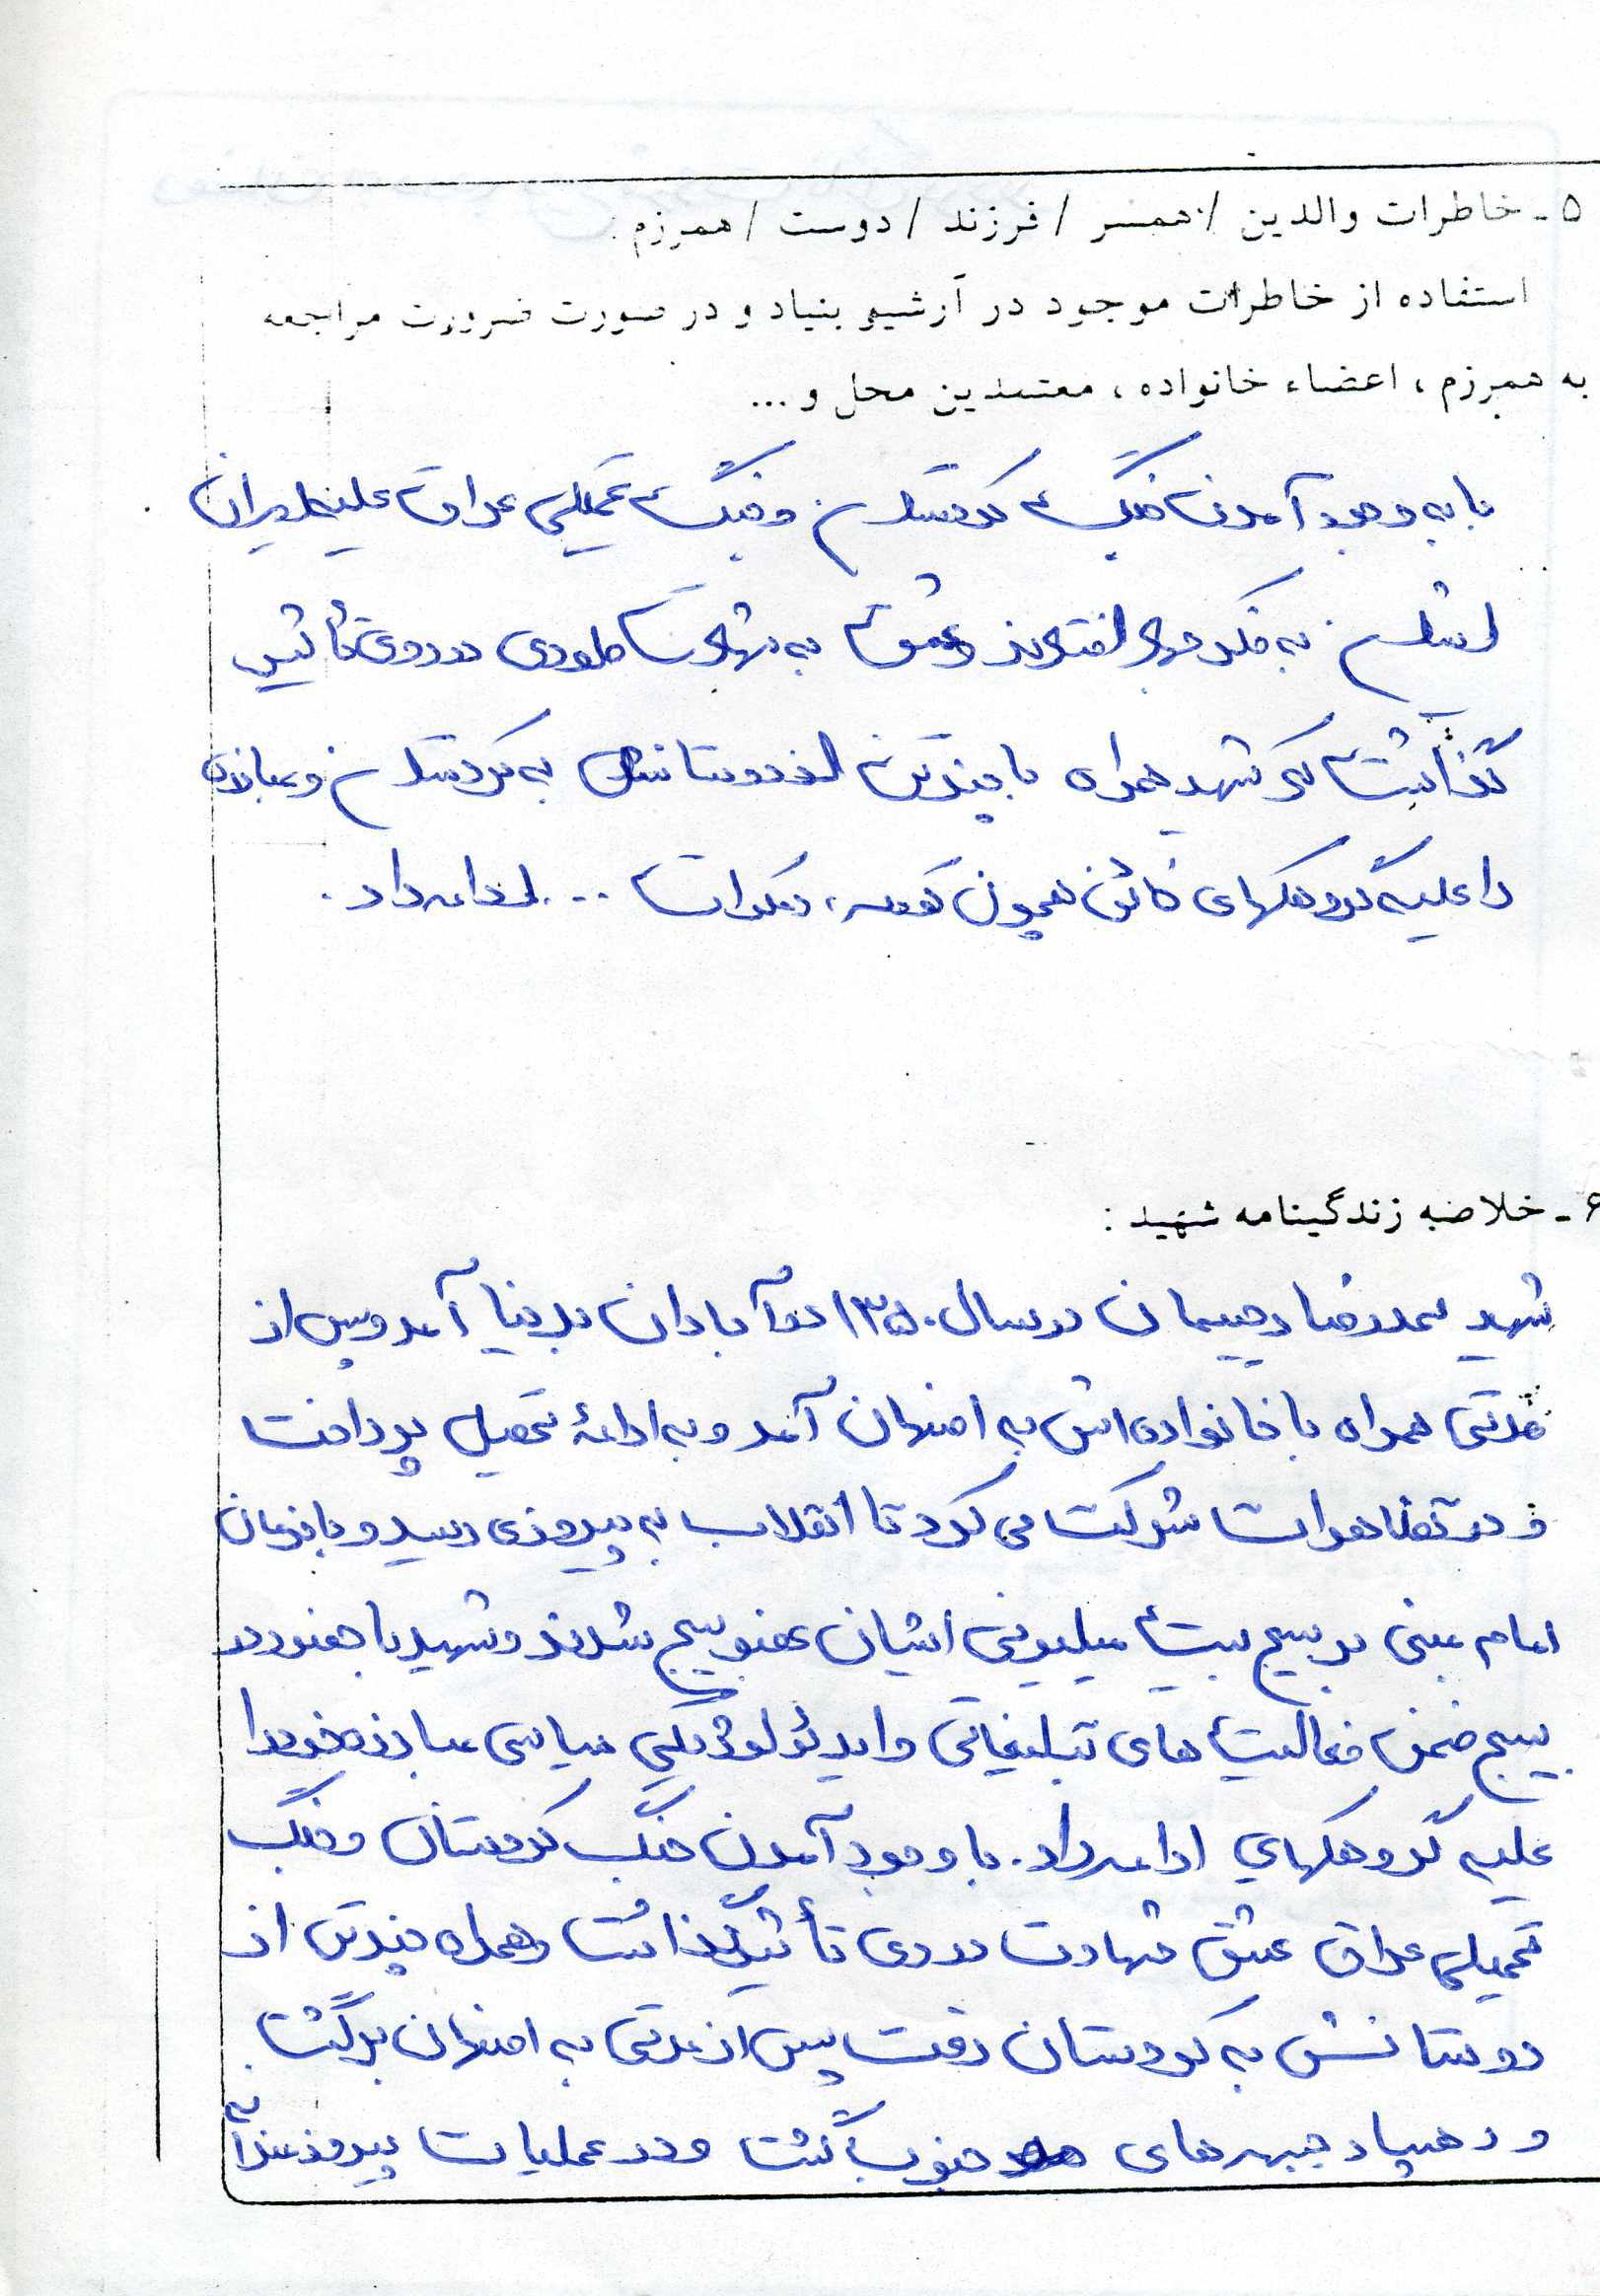 ۵ - خاطرات والدین / همسر / فرزند / دوست / همرزم :
استفاده از خاطرات موجود در آرشیو بنیاد و در صورت ضرورت مراجعه
به همرزم ، اعضاء خانواده ، معتمدین محل و ...
با به وجود آمدن جنگ کردستان و جنگ تحمیلی عراق علیه ایران
ایشان به فکر جهاد افتادند و عشق به شهادت طوری در روی تأثیر
گذاشت که شهید همراه با چندتن از دوستانش به کردستان و مبارزه
را علیه گروهکهای خائن همچون کومله ، دمکرات ... ادامه داد .
۶ - خلاصه زندگینامه شهید :
شهید محمدرضا رحیمیان در سال ۱۳۵۰ در آبادان بدنیا آمد و پس از
مدتی همراه با خانواده اش به اصفهان آمد و به ادامهٔ تحصیل پرداخت
و در تظاهرات شرکت می کرد تا انقلاب به پیروزی رسید و با فرمان
امام مبنی بر بسیج بیست میلیونی ایشان عضو بسیج شدند و شهید با حضور در
بسیج ضمن فعالیت های تبلیغاتی و ایدئولوژیکی سیاسی مبارزه خود را
علیه گروهکهای ادامه داد . با وجود آمدن جنگ کردستان و جنگ
تحمیلی عراق عشق شهادت در وی تأثیر گذاشت و همراه چندتن از
دوستانش به کردستان رفت پس از مدتی به اصفهان برگشت .
و رهسپار جبهه های جنوب گشت و در عملیات پیروزمندانه